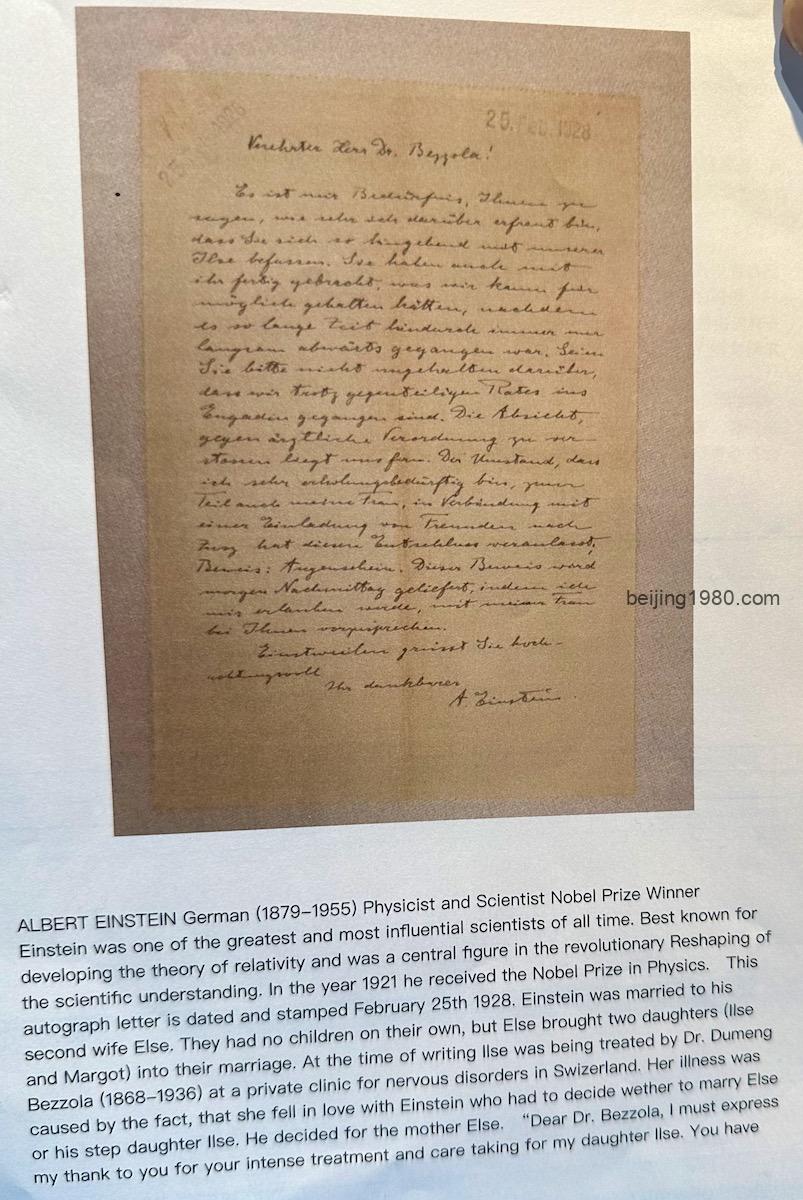 25. Feb. 1928
Verehrter Herr Dr. Bezzola!
Es ist mir Bedürfnis, Ihnen zu
sagen, wie sehr ich darüber erfreut bin,
dass Sie sich so hingehend mit unserer
Ilse befassen. Sie haben auch mit
ihr fertig gebracht, was wir kaum für
möglich gehalten hätten, nachdem
es so lange Zeit hindurch immer nur
langsam abwärts gegangen war. Seien
Sie bitte nicht ungehalten darüber,
dass wir trotz gegenteiligen Rates ins
Engadin gegangen sind. Die Absicht,
gegen ärztliche Verordnung zu ver-
stossen liegt uns fern. Der Umstand, dass
ich sehr erholungsbedürftig bin, zum
Teil auch meine Frau, in Verbindung mit
einer Einladung von Freunden nach
Zuoz hat diesen Entschluss veranlasst.
Beweis: Augenschein. Dieser Beweis wird
morgen Nachmittag geliefert, indem ich
mir erlauben werde, mit meiner Frau
bei Ihnen vorzusprechen.
Einstweilen grüsst Sie hoch-
achtungsvoll
Ihr dankbarer
A. Einstein.
beijing1980.com
ALBERT EINSTEIN German (1879–1955) Physicist and Scientist Nobel Prize Winner
Einstein was one of the greatest and most influential scientists of all time. Best known for
developing the theory of relativity and was a central figure in the revolutionary Reshaping of
the scientific understanding. In the year 1921 he received the Nobel Prize in Physics. This
autograph letter is dated and stamped February 25th 1928. Einstein was married to his
second wife Else. They had no children on their own, but Else brought two daughters (Ilse
and Margot) into their marriage. At the time of writing Ilse was being treated by Dr. Dumeng
Bezzola (1868–1936) at a private clinic for nervous disorders in Swizerland. Her illness was
caused by the fact, that she fell in love with Einstein who had to decide wether to marry Else
or his step daughter Ilse. He decided for the mother Else. “Dear Dr. Bezzola, I must express
my thank to you for your intense treatment and care taking for my daughter Ilse. You have